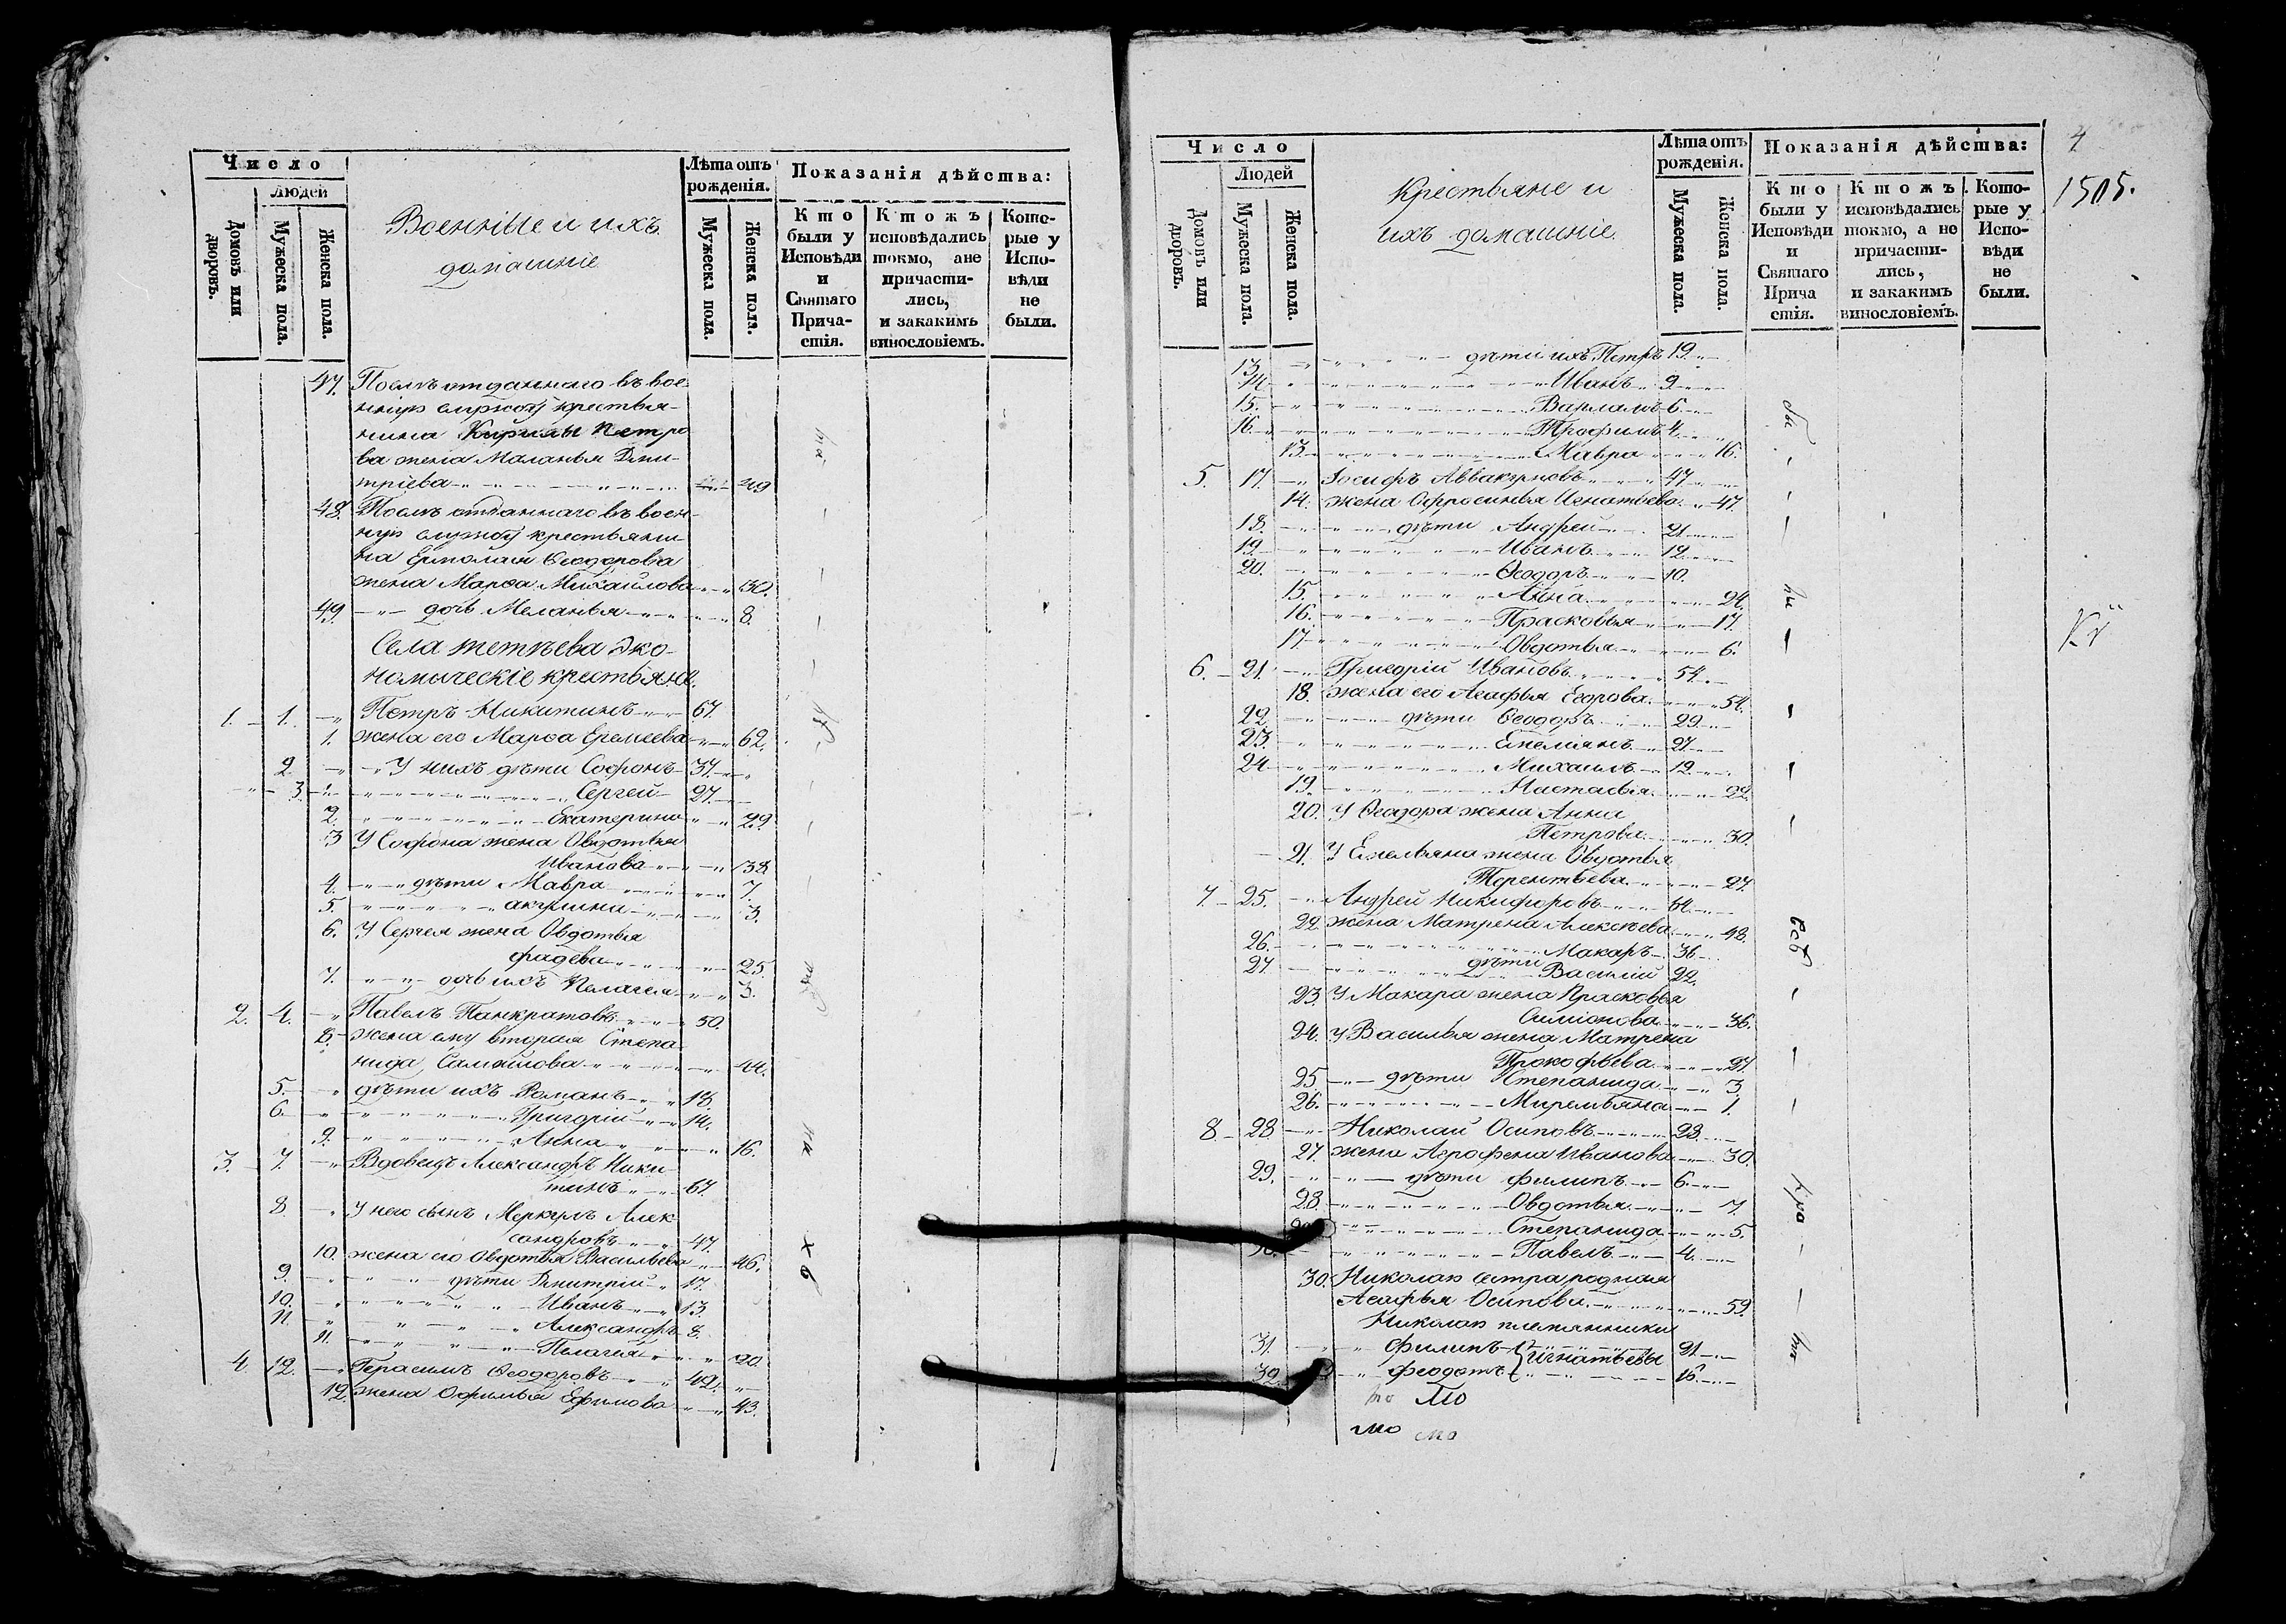 Число
Людей
Домовъ или дворовъ.
Мужеска пола.
Женска пола.
Военные и ихъ
домашніе
Лѣта отъ рожденія.
Мужеска пола.
Женска пола.
Показанія дѣйства:
Кто были у Исповѣди и Святаго Прича-стія.
Ктожъ исповѣдались токмо, а не причасти-лись, и закакимъ винословіемъ.
Кото-рые у Испо-вѣди не были.
47. Послѣ отданнаго въ вое-
нную службу крестья-
нина Кирилы Петро
ва жена Маланья Дми-
тріева 49
48. Послѣ отданнаго въ воен-
ную службу крестьяни-
на Ермолая Ѳеодорова
жена Марѳа Михайлова 30.
49 дочь Меланья 8.
Села тетѣева эко-
номическіе крестьяне.
1. 1. Петръ Никитинъ 67.
1. жена его Марѳа Еремѣева 62.
2 У нихъ дѣти Софонъ 37.
3. Сергей 27.
2. Екатерина 29.
3 У Софона жена Овдотья
Иванова 38
4. дѣти Мавра 7.
5. акулина 3.
6. У Сергея жена Овдотья
фадева 25.
7. дочь ихъ Пелагея 3.
2. 4. Павелъ Панкратовъ 50.
8. жена ему вторая Степа-
нида Самойлова 44.
5. дѣти ихъ Романъ 18.
6. Григорій 14.
9. Анна 16.
3. 7. Вдовецъ Александръ Ники-
тинъ 67.
8 У него сынъ Меркулъ Алек
сандровъ 47.
10. жена его Овдотья Васильева 46.
9. дѣти Дмитрій 17.
10. Иванъ 13
11. Александръ 8.
11. Пелагея 20
4. 12. Герасимъ Ѳеодоровъ 42.
12. жена Офимья Ефимова 43.
Число
Людей
Домовъ или дворовъ.
Мужеска пола.
Женска пола.
Крестьяне и
ихъ домашніе.
Лѣта отъ рожденія.
Мужеска пола.
Женска пола.
Показанія дѣйства:
Кто были у Исповѣди и Святаго Прича стія.
Ктожъ исповѣдались токмо, а не причасти-лись, и закакимъ винословіемъ.
Кото-рые у Испо-вѣди не были.
4
1505.
13. дѣти ихъ Петръ 19.
14 Иванъ 9.
15. Варламъ 6.
16. Трофимъ 4.
13. Мавра 16.
5. 17. Іосифъ Аввакумовъ 47
14. жена Офросинья Игнатьева 47.
18. дѣти Андрей 21.
19. Иванъ 12.
20. Ѳеодоръ 10.
15. Анна 24.
16. Прасковья 17.
17 Овдотья 6.
6. 21. Григорій Ивановъ 54.
18. жена его Агафья Егорова 54.
22. дѣти Ѳеодоръ 29.
23. Емеліянъ 27.
24 Михаилъ 12.
19. Настасья 22.
20. У Ѳеодора жена Анна
Петрова 30.
21. У Емельяна жена Овдотья
Терентьева 27.
7. 25. Андрей Никифоровъ 64.
22. жена Матрена Алексѣева 48.
26. дѣти Макаръ 36
27 Василій 22.
23. У Макара жена Прасковья
Симіонова 36.
24. У Василья жена Матрена
Прокофьева 27
25 дѣти Степанида 3
26. Миремьяна 1.
8 28. Николай Осиповъ 28.
27. жена Агрофена Иванова 30.
29. дѣти филипъ 6.
28. Овдотья 7.
Степанида 5.
Павелъ 4.
30. Николая сестра родная
Агафья Осипова 59.
Николая племянники
31. филипъ 21.
игнатьевы
32. феодотъ 16.
По
мо мо